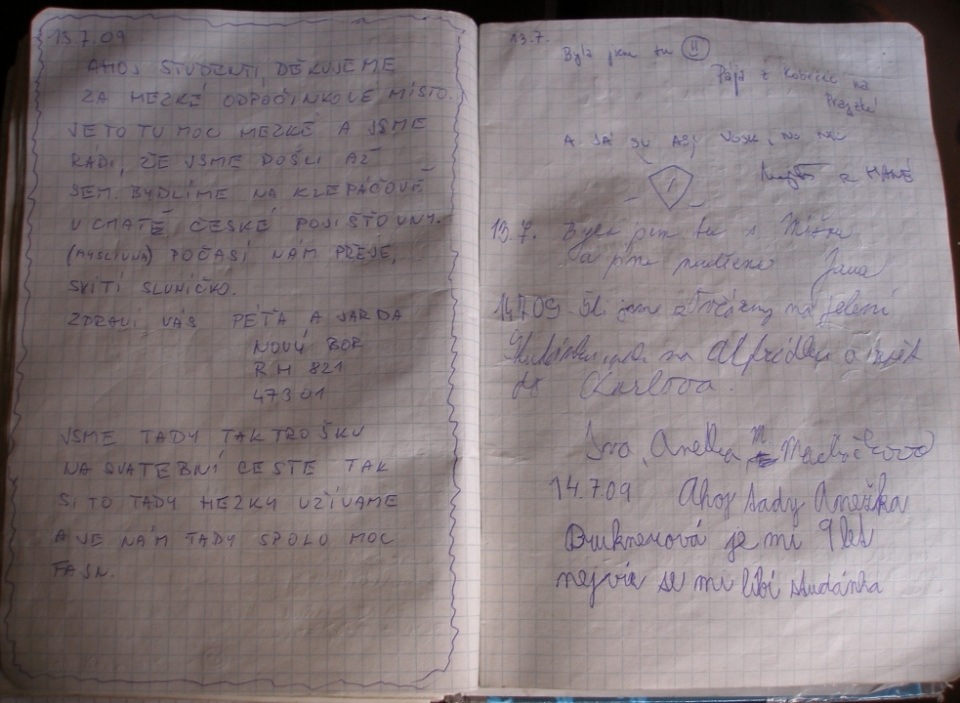 13.7.09
AHOJ STUDENTI DĚKUJEME
ZA HEZKÉ ODPOČINKOVÉ MÍSTO.
JE TO TU MOC HEZKÉ A JSME
RÁDI, ŽE JSME DOŠLI AŽ
SEM. BYDLÍME NA KLEPÁČOVĚ
V CHATĚ ČESKÉ POJIŠŤOVNY.
(MYSLIVNA) POČASÍ NÁM PŘEJE,
SVÍTÍ SLUNÍČKO.
ZDRAVÍ VÁS PÉŤA A JARDA
NOVÝ BOR
RH 821
473 01
JSME TADY TAK TROŠKU
NA SVATEBNÍ CESTĚ TAK
SI TO TADY HEZKY UŽÍVAME
A JE NÁM TADY SPOLU MOC
FAJN.
13.7.
Byla jsem tu
Pája z na
A JÁ SU ASI NO NIC
z HANÉ
13.7. Byla jsem tu s
a jsme Jana
14.7.09 Šli jsme na Jelení
Studánku, na Alfrédku a zpět
do Karlova.
Iva, Anežka
14.7.09 Ahoj tady Anežka
Bruknerová je mi 9 let
nejvíc se mi líbí studánka